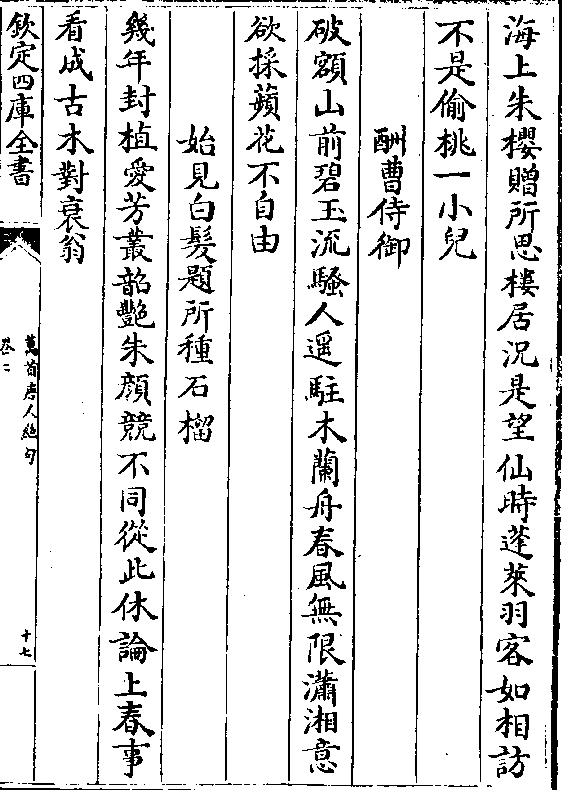 海上朱櫻贈所思樓居況是望仙時蓬萊羽客如相訪
不是偷桃一小兒
酬曹侍御
破額山前碧玉流騷人遥駐木蘭舟春風無限瀟湘意
欲採蘋花不自由
始見白髮題所種石榴
幾年封植愛芳叢韶艷朱顏競不同從此休論上春事
看成古木對衰翁
欽定四庫全書
萬首唐人絶句
卷二
十七